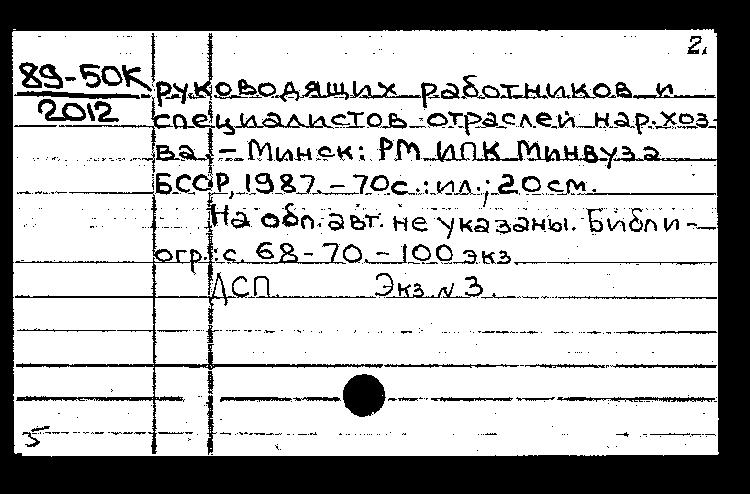 2.
89-50К
2012
руководящих работников и
специалистов отраслей нар.хоз-
ва. – Минск: РМ ИПК Минвуза
БССР, 1987. – 70с.: ил.; 20см.
На обл. авт. не указаны. Библи-
огр.: с. 68-70. – 100 экз.
ДСП. Экз. N 3.
5